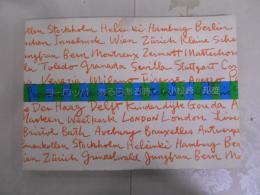 nellen Stockholm Helsinki Hamburg Berlin
nchen Innsbruck Wien Zürich Kleine Sche
ngfrau Bern Montreux Zermatt Matterhorn
Toledo Granada Sevilla Stuttgart
Venezia Milano Firenze
ヨーロッパ あるときある時
Den Haag Delft Kinderdijk Gouda A
Marken London London
Bristol Bath Bourg Bruxelles Antwerpen
mankollen Stockholm Helsinki Hamburg Be
en Wien Zürich Grindelwald Jungfrau Bern Mo